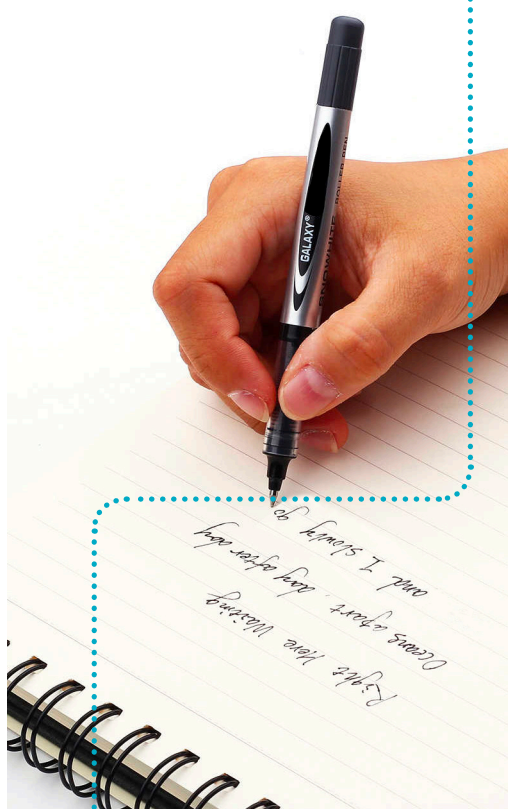 GALAXY®
SNOWHITE ROLLER PEN
Right Here Waiting
Oceans apart, day after day
and I slowly go